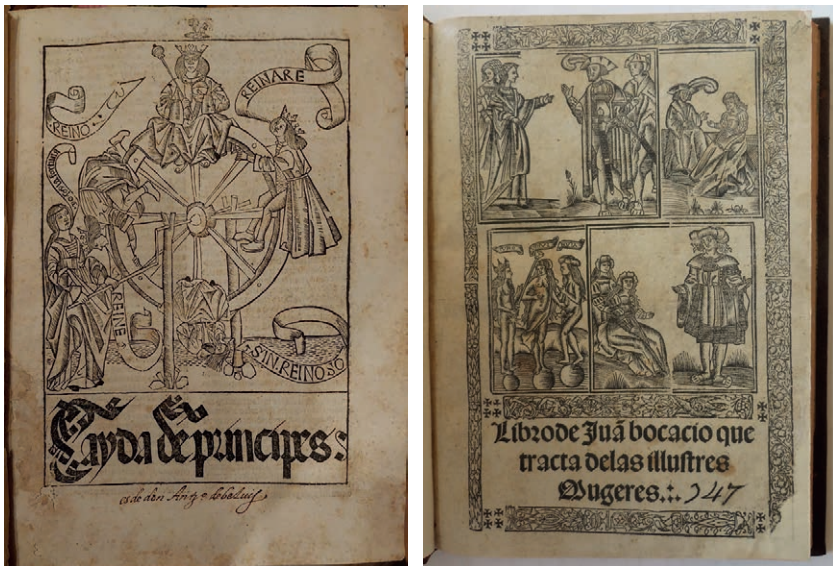 REINO
REINARE
REINE
SIN REINO SO
Cayda de principes:
es de don
Libro de Juã bocacio que
tracta delas illustres
Mugeres.:. 947